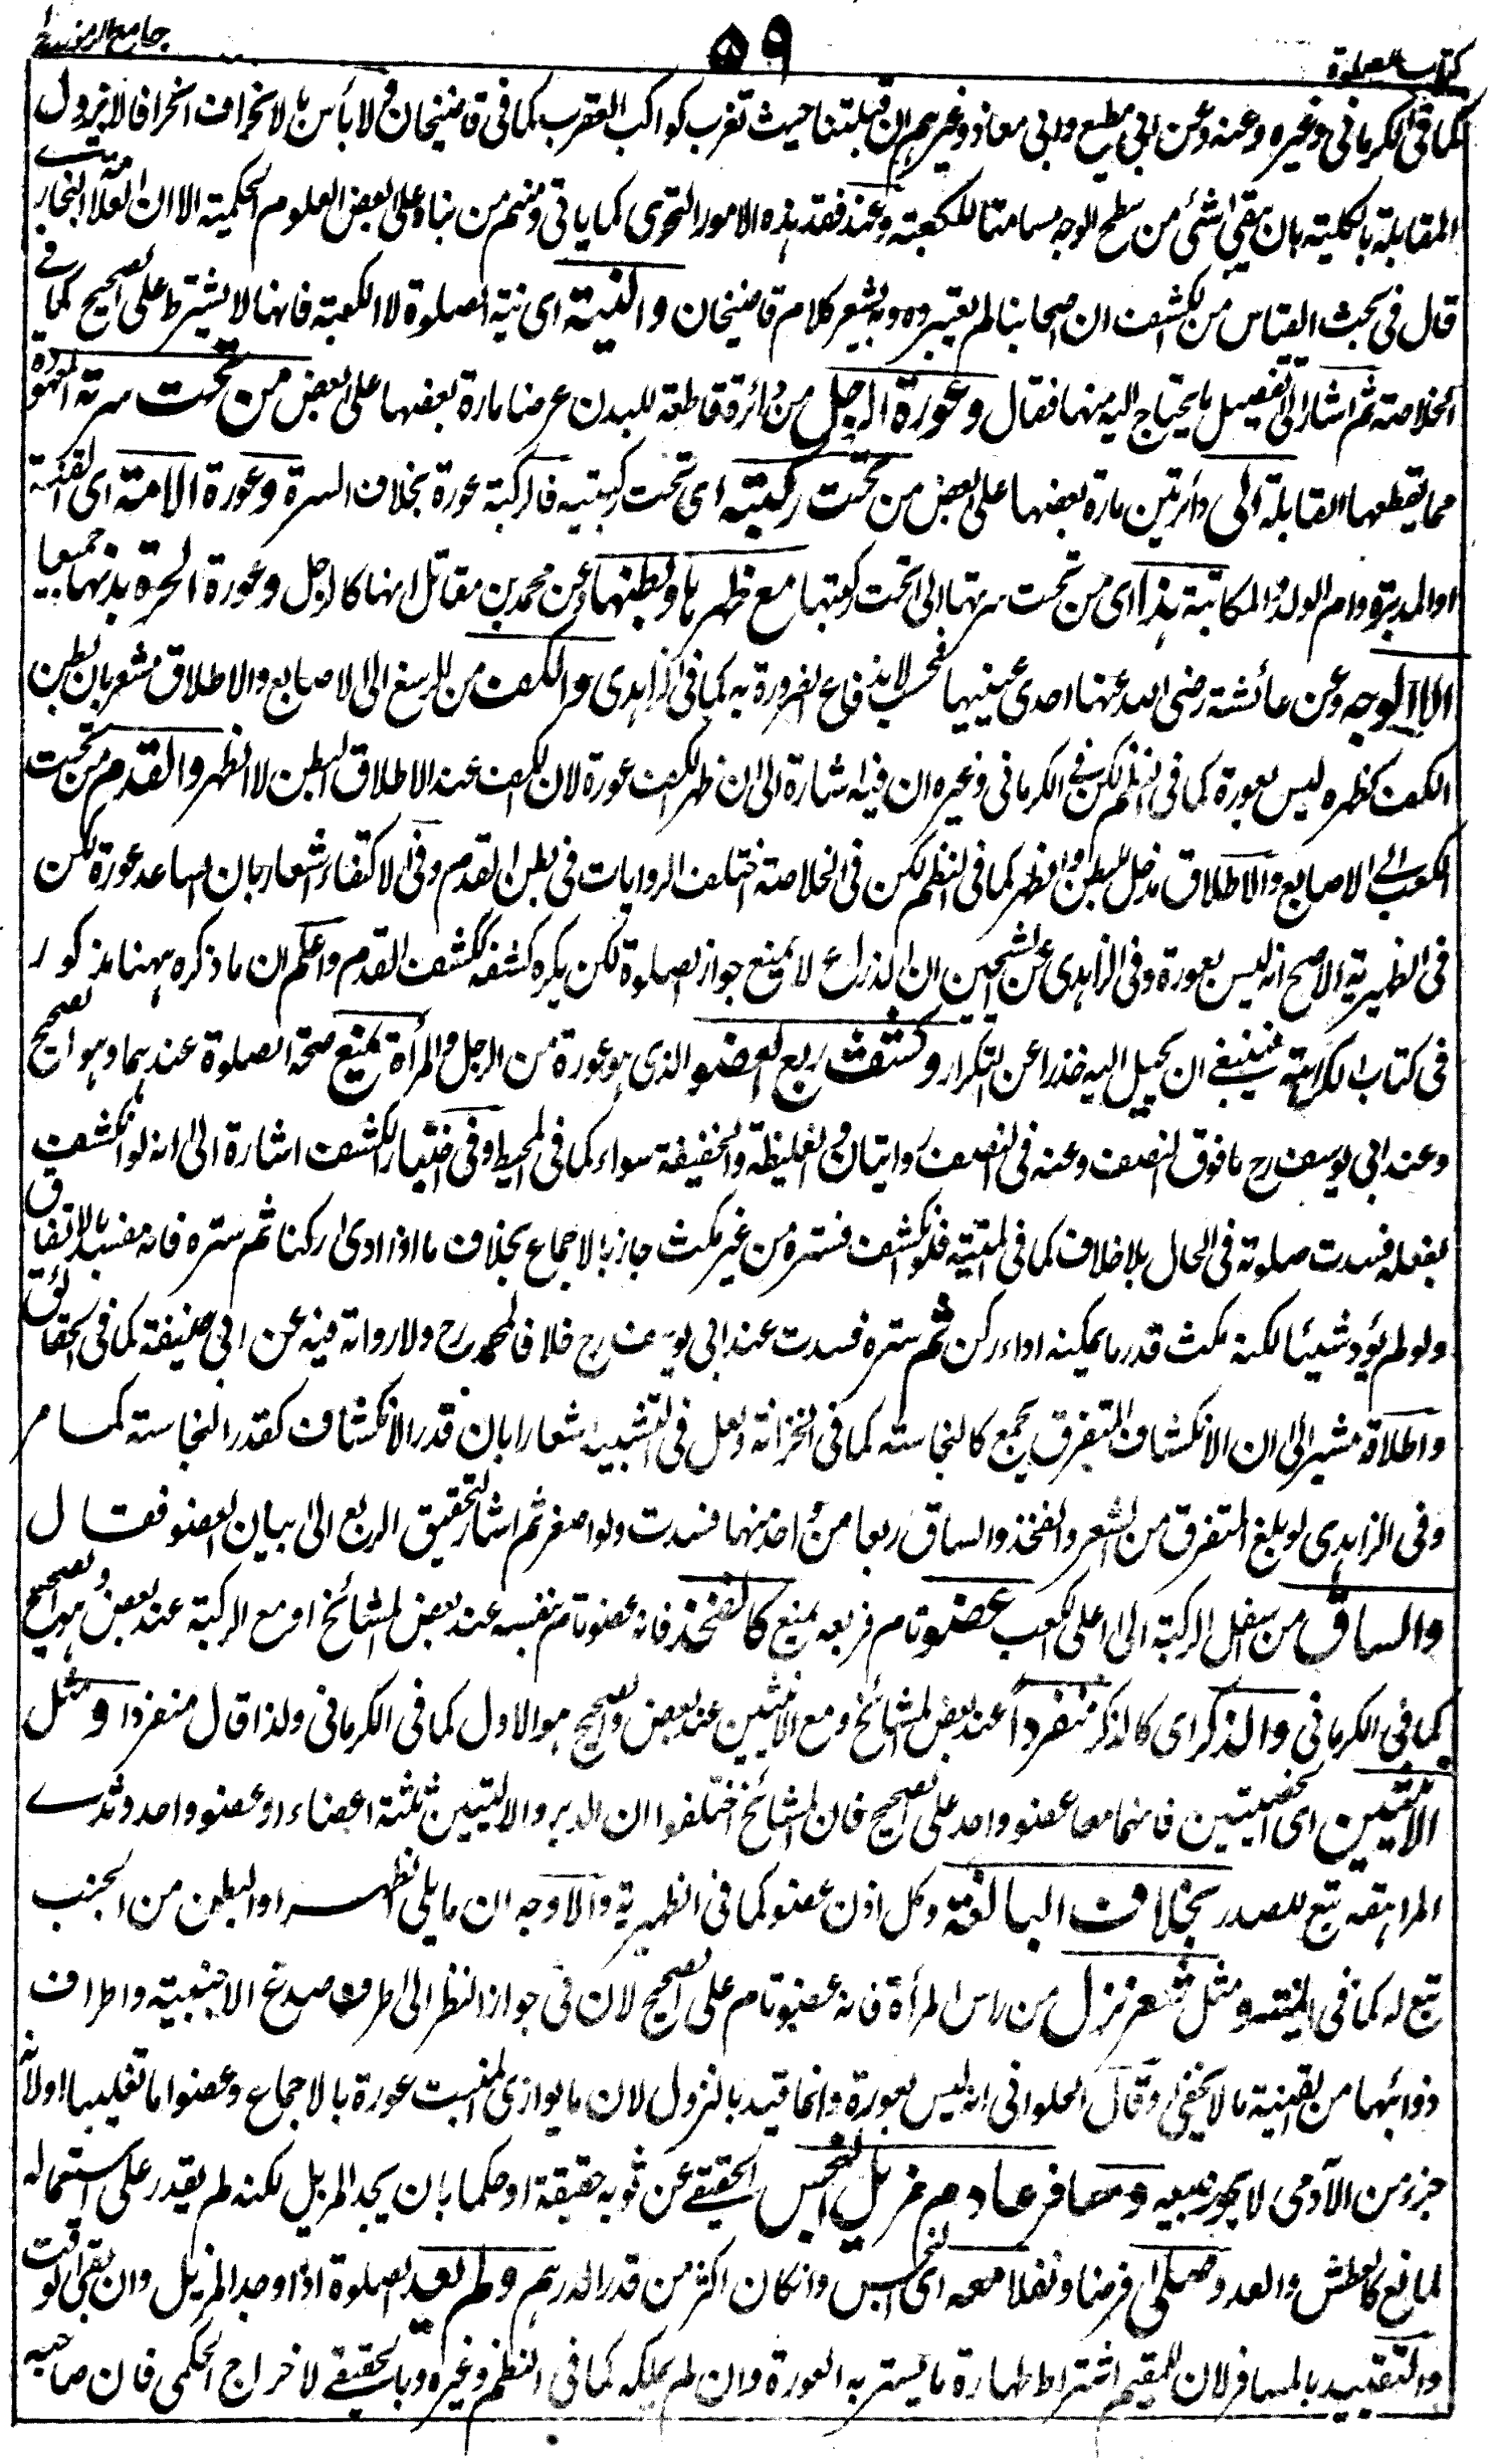 جامع الرموز
٥٩
كتاب الصلوة
كما فى الكرمانى وغيره وعنه وعن ابى مطيع وابى معاذ وغيرهم ان قبلتنا حيث تغرب كواكب العقرب كما فى قاضيخان ولا بأس بالانحراف انحرافا لا تزول
المقابلة بالكلية بان يبقى شئ من سطح الوجه مسامتا للكعبة وعند فقد هذه الامور التحرى كما ياتى ومنهم من بناه على بعض العلوم الحكمية الا ان العلامة البخارى
قال فى بحث القياس من الكشف ان اصحابنا لم يعتبروه وبه يشعر كلام قاضيخان والنية اى نية الصلوة لا الكعبة فانها لا يشترط على الصحيح كما فى
الخلاصة ثم اشار الى تفصيل ما يحتاج اليه منها فقال وعورة الرجل من دائرة قاطعة للبدن عرضا مارة بعضها على بعض من تحت سرته المعهودة
مما يقطعها القابلة الى دائرتين مارة بعضها على بعض من تحت ركبته اى تحت ركبتيه فالركبة عورة بخلاف السرة وعورة الامة اى القنة
او المدبرة وام الولد والمكاتبة هذا اى من تحت سرتها الى تحت ركبتها مع ظهرها وبطنها وعن محمد بن مقاتل انها كالرجل وعورة الحرة بدنها جميعا
الا الوجه وعن عائشة رضى الله عنها احدى عينيها فحسب لاندفاع الضرورة به كما فى الزاهدى والكف من الرسغ الى الاصابع والاطلاق مشعر بان بطن
الكف كظهره ليس بعورة كما فى النظم لكن فى الكرمانى وغيره ان فيه اشارة الى ان ظهر الكف عورة لان الكف عند الاطلاق البطن لا الظهر والقدم من تحت
الكعب الى الاصابع والاطلاق مدخل للبطن والظهر كما فى النظم لكن فى الخلاصة اختلف الروايات فى بطن القدم وفى الاكتفاء اشعار بان الساعد عورة لكن
فى الظهيرية الاصح انه ليس بعورة وفى الزاهدى عن الشيخين ان الذراع لا يمنع جواز الصلوة لكن يكره كشفه ككشف القدم واعلم ان ما ذكره ههنا مذكور
فى كتاب الكراهية فينبغى ان يحيل اليه حذرا عن التكرار وكشف ربع العضو الذى هو عورة من الرجل والمرأة يمنع صحة الصلوة عندهما وهو الصحيح
وعند ابى يوسف رح ما فوق النصف وعنه فى النصف روايتان والغليظة والخفيفة سواء كما فى المحيط وفى اختيار الكشف اشارة الى انه لو انكشف
بفعله فسدت صلوته فى الحال بلا خلاف كما فى المنية فلو انكشف فستره من غير مكث جاز بالاجماع بخلاف ما اذا ادى ركنا ثم ستره فانه مفسد بالاتفاق
ولو لم يؤد شيئا لكنه مكث قدر ما يمكنه اداء ركن ثم ستره فسدت عند ابى يوسف رح خلافا لمحمد رح ولا رواية فيه عن ابى حنيفة كما فى الحقائق
واطلاقه مشير الى ان الانكشاف المتفرق يجمع كالنجاسة كما فى الخزانة ولعل فى التشبيه اشعارا بان قدر الانكشاف كقدر النجاسة كما مر
وفى الزاهدى لو بلغ المتفرق من الشعر والفخذ والساق ربعا من احد منها فسدت ولو اصغر ثم اشار لتحقيق الربع الى بيان العضو فقال
والساق من اسفل الركبة الى اعلى الكعب عضو تام فربعه يمنع كالفخذ فانه عضو تام بنفسه عند بعض المشائخ او مع الركبة عند بعض وهو الصحيح
كما فى الكرمانى والذكر اى كالذكر منفردا عند بعض المشائخ ومع الانثيين عند بعض والصحيح هو الاول كما فى الكرمانى ولذا قال منفردا ومثل
الانثيين اى الخصيتين فانهما معا عضو واحد على الصحيح فان المشائخ اختلفوا ان الدبر والاليتين ثلثة اعضاء او عضو واحد وثدى
المراهقة تبع للصدر بخلاف البالغة وكل اذن عضو كما فى الظهيرية والاوجه ان ما يلى الظهر او البطن من الجنب
تبع له كما فى المنية ومثل شعر نزل من راس المرأة فانه عضو تام على الصحيح لان فى جواز النظر الى طرف صدغ الاجنبية واطراف
ذوائبها من الفتنة ما لا يخفى وقال الحلوانى انه ليس بعورة وانما قيد بالنزول لان ما يوازى المنبت عورة بالاجماع وعضو اما تغليبا او لانه
جزء من الآدمى لا يجوز بيعه ومسافر عادم مزيل النجس الحقيقى عن ثوبه حقيقة او حكما بان يجد المزيل لكنه لم يقدر على استعماله
لمانع كالعطش والعدو صلى فرضا ونفلا معه اى النجس وان كان اكثر من قدر الدرهم ولم يعد الصلوة اذا وجد المزيل وان بقى الوقت
والتقييد بالمسافر لان للمقيم اشتراط طهارة ما يستر به العورة وان لم يملكه كما فى النظم وغيره وبالحقيقى لاخراج الحكمى فان صاحبه